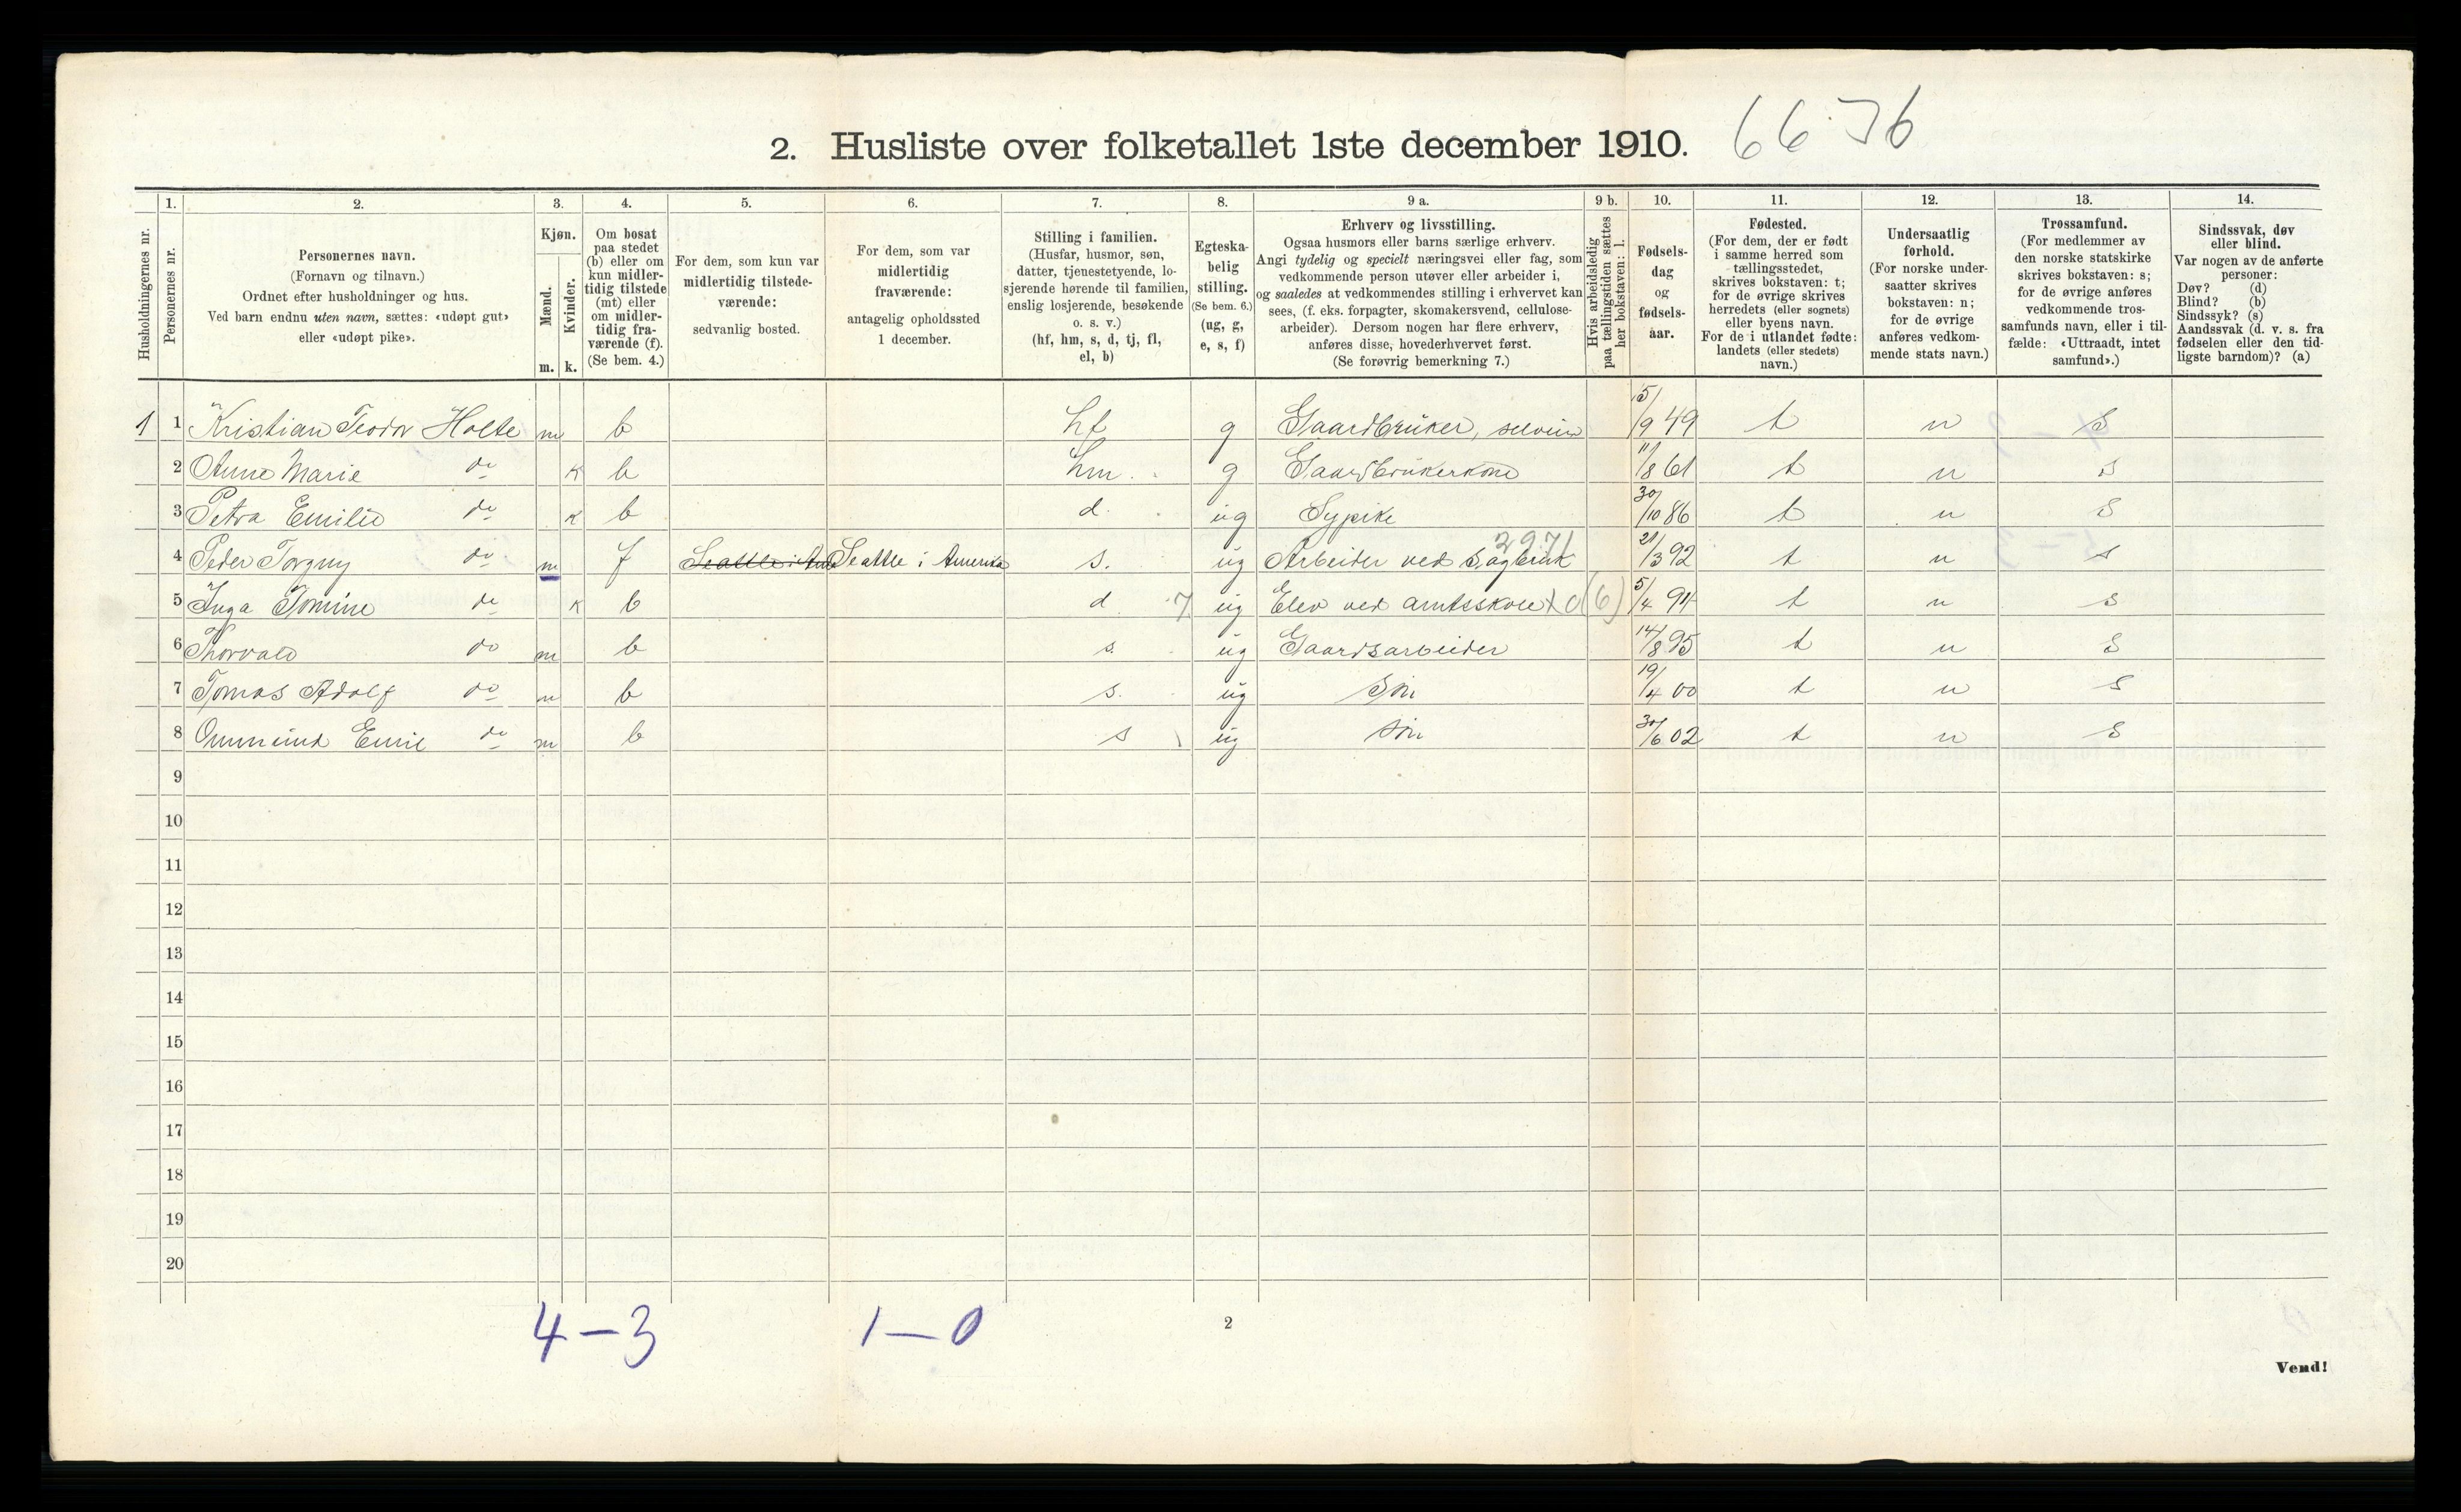 2. Husliste over folketallet 1ste december 1910. 66 76
1. 2. 3. 4. 5. 6. 7. 8. 9 a. 9 b. 10. 11. 12. 13. 14.
Husholdningernes nr.
Personernes nr.
Personernes navn.
(Fornavn og tilnavn.)
Ordnet efter husholdninger og hus.
Ved barn endnu uten navn, sættes: «udøpt gut»
eller «udøpt pike».
Kjøn.
Mænd.
m.
Kvinder.
k.
Om bosat
paa stedet
(b) eller om
kun midler-
tidig tilstede
(mt) eller
om midler-
tidig fra-
værende (f).
(Se bem. 4.)
For dem, som kun var
midlertidig tilstede-
værende:
sedvanlig bosted.
For dem, som var
midlertidig
fraværende:
antagelig opholdssted
1 december.
Stilling i familien.
(Husfar, husmor, søn,
datter, tjenestetyende, lo-
sjerende hørende til familien,
enslig losjerende, besøkende
o. s. v.)
(hf, hm, s, d, tj, fl,
el, b)
Egteska-
belig
stilling.
(Se bem. 6.)
(ug, g,
e, s, f)
Erhverv og livsstilling.
Ogsaa husmors eller barns særlige erhverv.
Angi tydelig og specielt næringsvei eller fag, som
vedkommende person utøver eller arbeider i,
og saaledes at vedkommendes stilling i erhvervet kan
sees, (f. eks. forpagter, skomakersvend, cellulose-
arbeider). Dersom nogen har flere erhverv,
anføres disse, hovederhvervet først.
(Se forøvrig bemerkning 7.)
Hvis arbeidsledig
paa tællingstiden sættes
her bokstaven: l.
Fødsels-
dag
og
fødsels-
aar.
Fødested.
(For dem, der er født
i samme herred som
tællingsstedet,
skrives bokstaven: t;
for de øvrige skrives
herredets (eller sognets)
eller byens navn.
For de i utlandet fødte:
landets (eller stedets)
navn.)
Undersaatlig
forhold.
(For norske under-
saatter skrives
bokstaven: n;
for de øvrige
anføres vedkom-
mende stats navn.)
Trossamfund.
(For medlemmer av
den norske statskirke
skrives bokstaven: s;
for de øvrige anføres
vedkommende tros-
samfunds navn, eller i til-
fælde: «Uttraadt, intet
samfund».)
Sindssvak, døv
eller blind.
Var nogen av de anførte
personer:
Døv? (d)
Blind? (b)
Sindssyk? (s)
Aandssvak (d. v. s. fra
fødselen eller den tid-
ligste barndom)? (a)
1 1 Kristian Teodor Holte m b hf g Gaardbruker, selveier 5/9 49 t n S
2 Anne Marie do k b hm g Gaardbrukerkone 11/8 61 t n s
3 Petra Emilie do k b d. ug Sypike 30/10 86 t n S
4 Peder Torgny do m f Seattle i Ame Seattle i Amerika s. ug Arbeider ved Sagbruk 2971 21/3 92 t n s
5 Inga Tomine do k b d 7 ug Elev ved amtsskole x0(6) 5/4 94 t n s
6 Thorvald do m b s. ug Gaardsarbeider 14/8 95 t n S
7 Tomas Adolf do m b s. ug Søn 19/4 00 t n S
8 Ommund Emil do m b s ug søn 30/6 02 t n S
9
10
11
12
13
14
15
16
17
18
19
20
4 – 3 1 – 0
2
Vend!